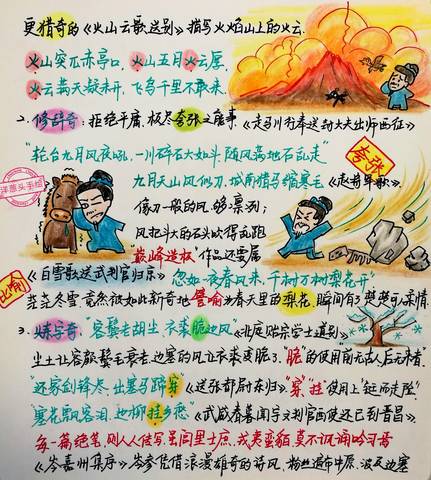 更猎奇的《火山云歌送别》描写火焰山上的火云
火山突兀赤亭口,火山五月火云厚,
火云满天凝未开,飞鸟千里不敢来.
2、修辞奇:拒绝平庸,极尽夸张之能事,《走马川行奉送封大夫出师西征》
"轮台九月风夜吼,一川碎石大如斗,随风满地石乱走"
夸张
洋葱头手绘
九月天山风似刀,城南猎马缩寒毛《赵将军歌》
像刀一般的风,够凛冽;
风把斗大的石头吹得乱跑
"巅峰造极"作品还要属
《白雪歌送武判官归京》"忽如一夜春风来,千树万树梨花开"
比喻
茫茫冬雪竟然被如此新奇地譬喻为春天里的梨花,瞬间有了楚楚可亲情.
3、炼字奇:"容鬓老胡尘,衣裘脆边风"《北庭贻宗学士道别》
尘土让容颜鬓毛衰老,边塞的风让衣裘送脆了."脆"的使用前无古人后无来者.
"还家剑锋尽,出塞马蹄穿"《送张都尉东归》"穿""挂"使用上"铤而走险"
"塞花飘客泪,边柳挂乡愁"《武威春暮闻宇文判官西使还已到晋昌》
每一篇绝笔,则人人传写,虽闾里士庶,戎夷蛮貊,莫不讽诵吟习焉
《岑嘉州集序》岑参凭借浪漫雄奇的诗风,粉丝遍布中原,波及边塞